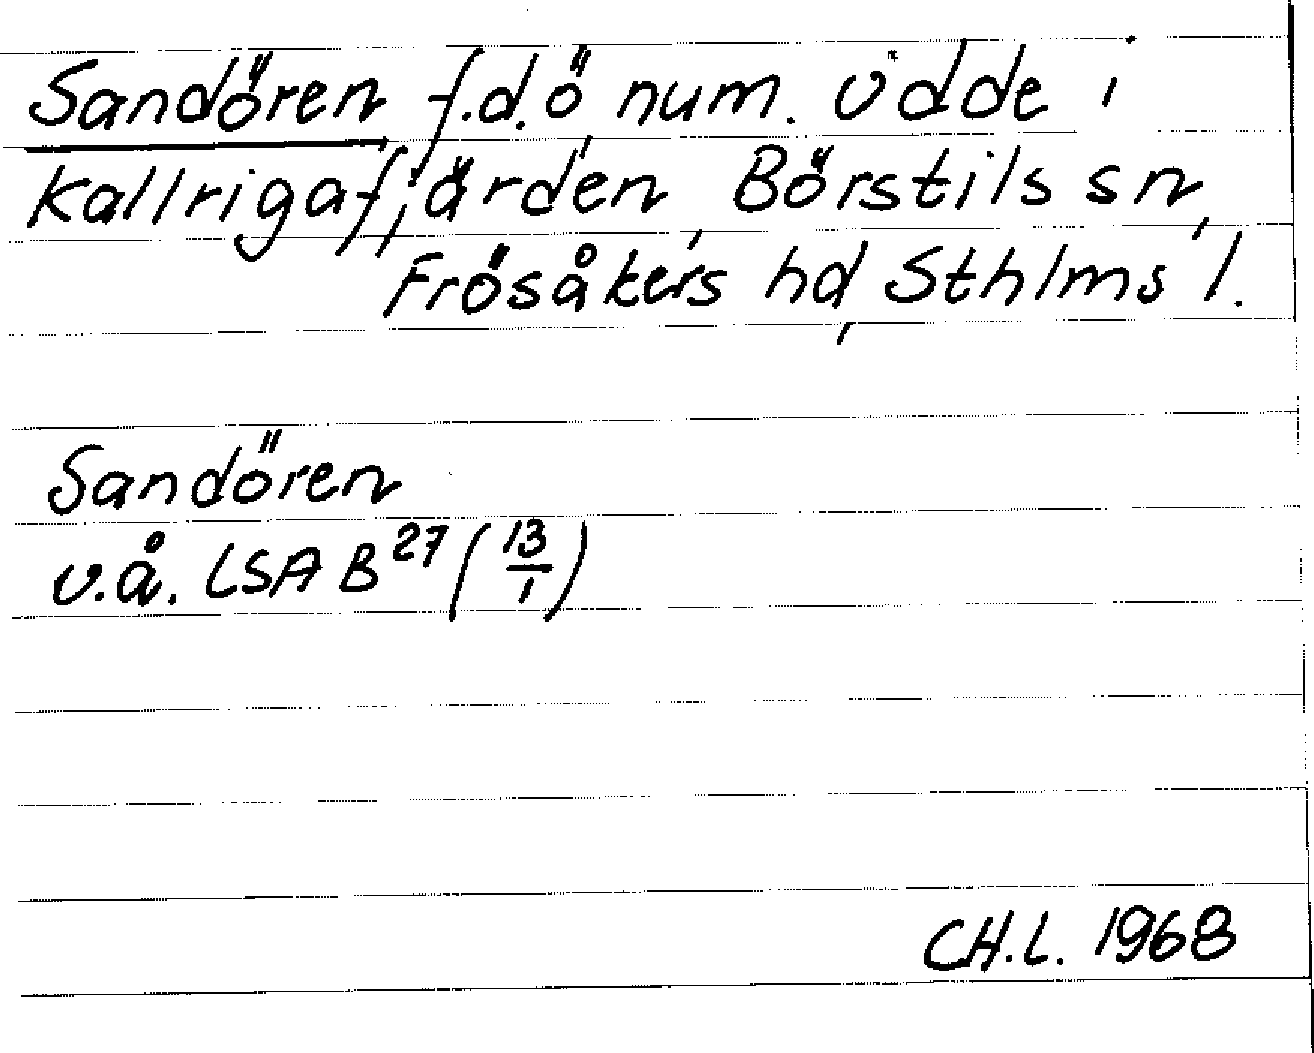 Sandören f.d. ö, num. udde i
Kallrigafjärden, Börstils sn,
Frösåkers hd, Sthlms l.
Sandören
u.å. LSA B 27 (13/1)
CH.L. 1968